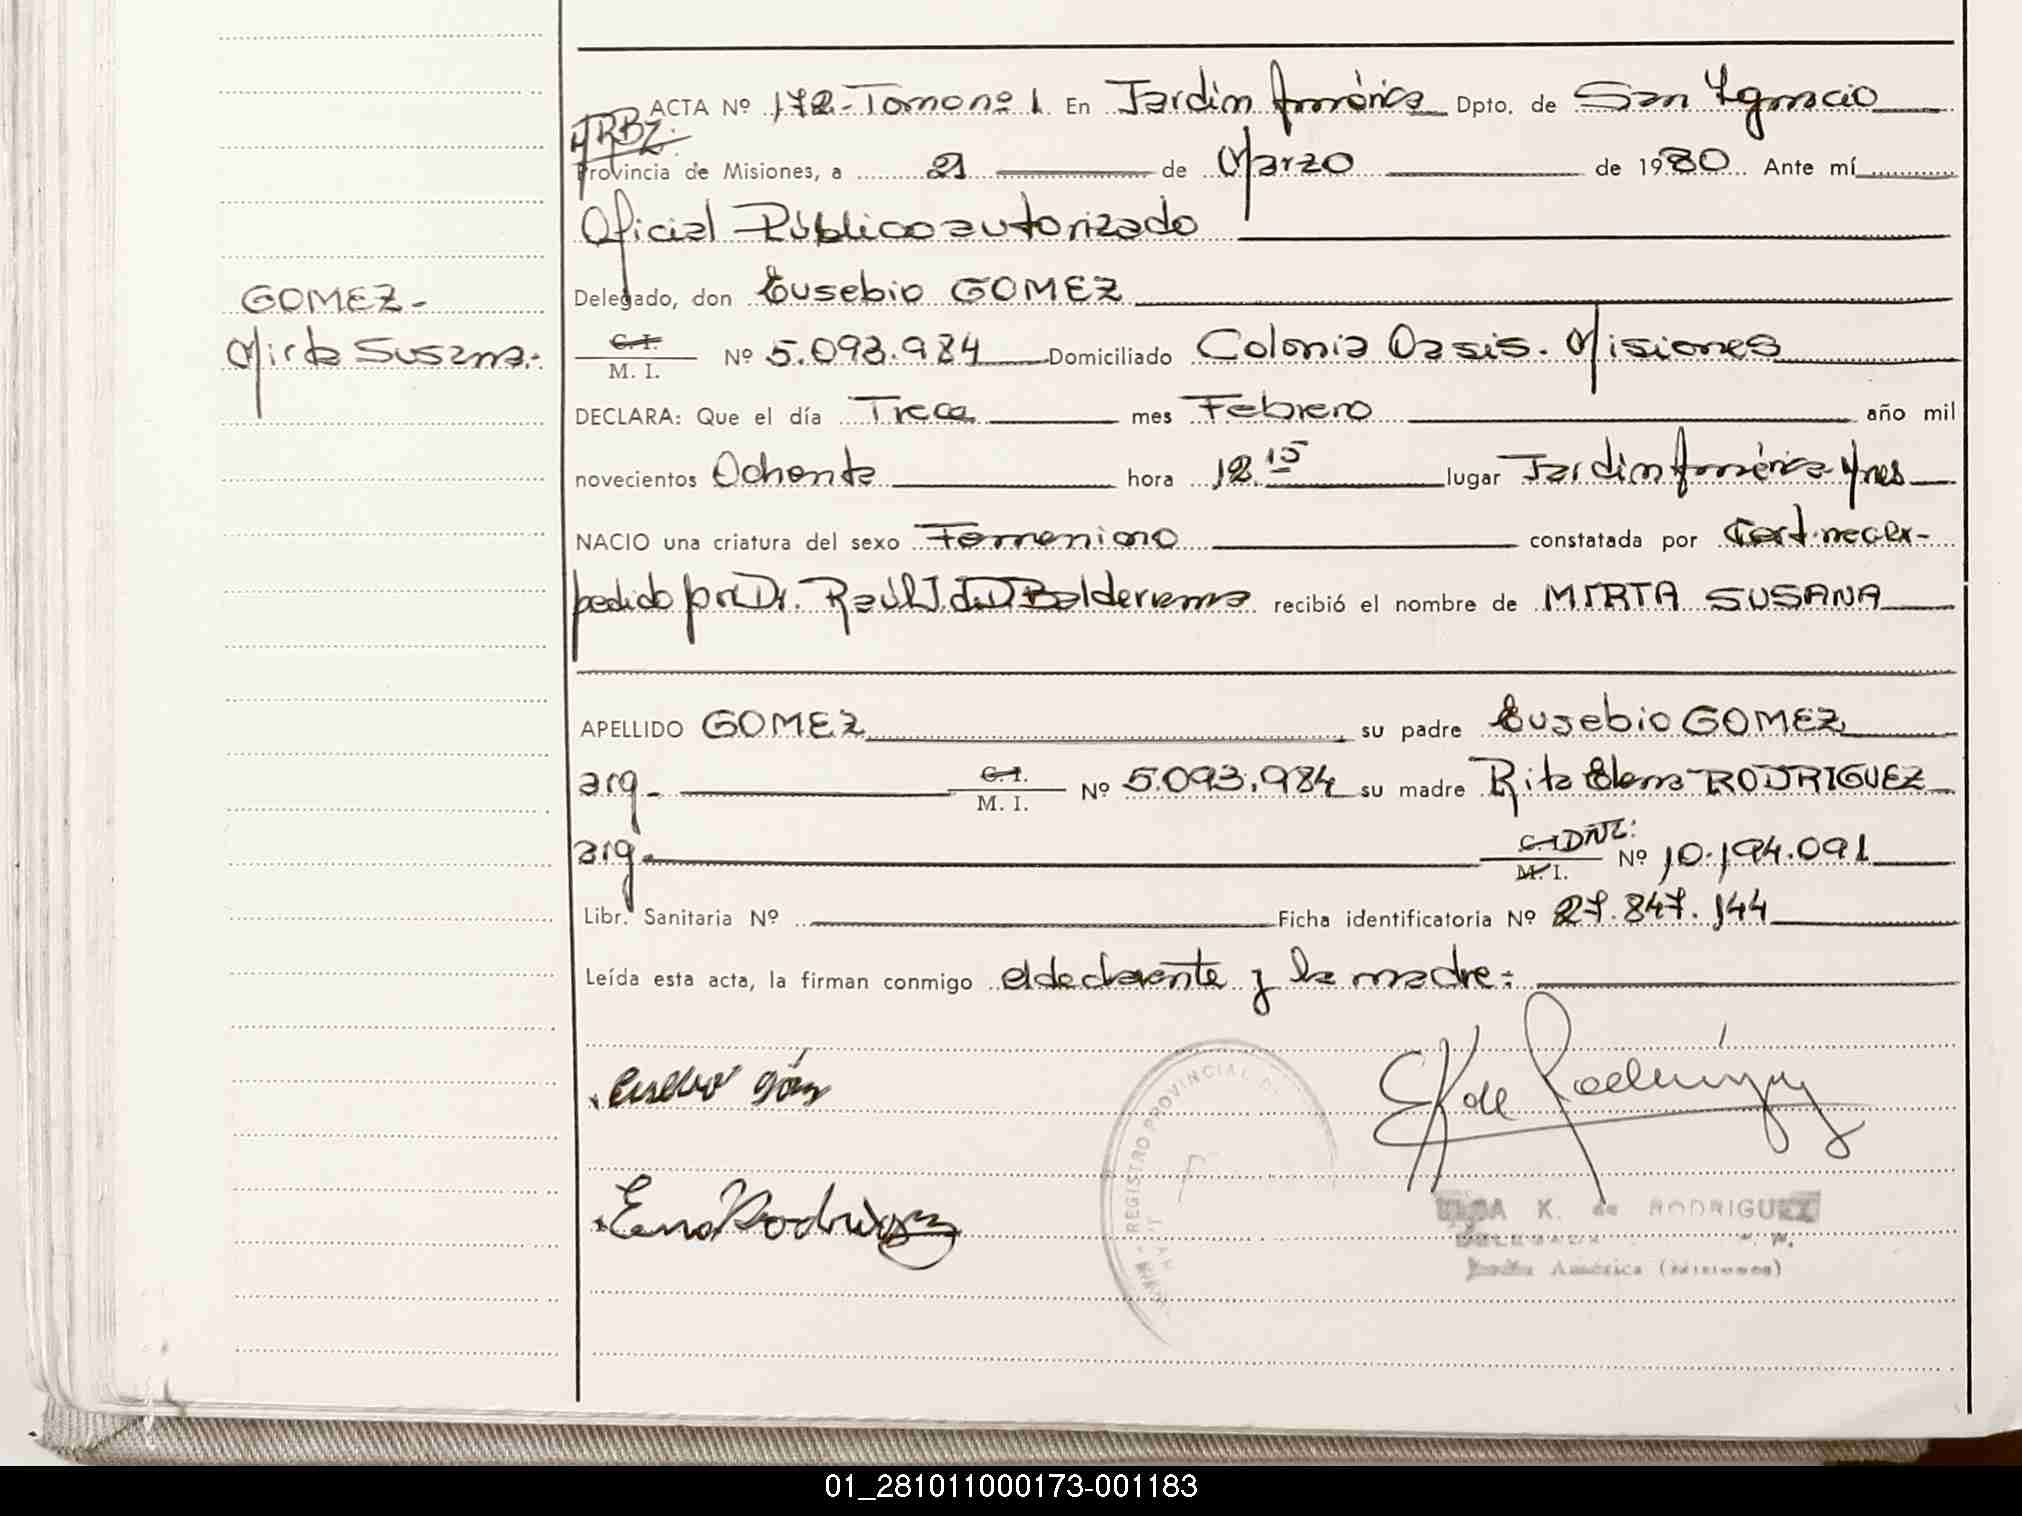 ACTA Nº 172-Tomo nº 1. En Jardín América Dpto. de San Ygnacio
Provincia de Misiones, a 21 de Marzo de 1980. Ante mí
Oficial Público autorizado
Delegado, don Eusebio GOMEZ
GOMEZ-
Mirta Susana.-
C. I.
M. I. Nº 5.093.984 Domiciliado Colonia Oasis. Misiones
DECLARA: Que el día Trece mes Febrero año mil
novecientos Ochenta hora 12.15 lugar Jardín América Mnes
NACIO una criatura del sexo Femenino constatada por Cert. mecex-
pedido por Dr. Raúl J. d. D Balderrama recibió el nombre de MIRTA SUSANA
APELLIDO GOMEZ su padre Eusebio GOMEZ
arg. C. I.
M. I. Nº 5.093.984 su madre Rita Elena RODRIGUEZ
arg. C. I. DNI:
M. I. Nº 10.194.091
Libr. Sanitaria Nº Ficha identificatoria Nº 27.847.144
Leída esta acta, la firman conmigo el declarante y la madre.-
REGISTRO PROVINCIAL DE
E K de Rodríguez
Eusebio Gómez
Elena Rodríguez
ELSA K. de RODRIGUEZ
América (Misiones)
01_281011000173-001183